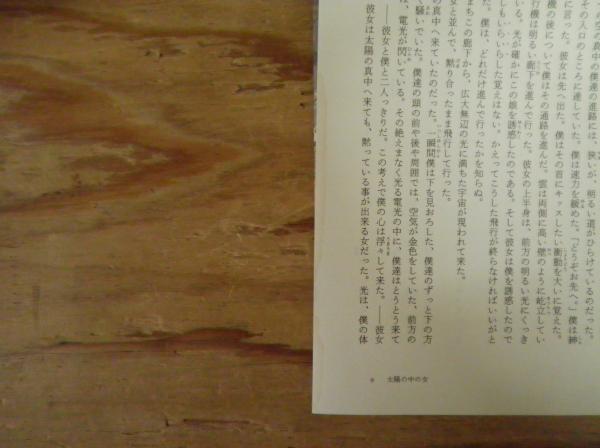 の空の真中の僕達の進路には、狭いが、明るい道がひらけているのだった。
その入口のところに達していた。僕は速力を緩めた。「どうぞお先へ。」僕は紳
に言った。彼女は先へ出た。僕はその首にキッスしたい衝動を大いに覚えた。
機の後について僕はその通路を進んだ。雲は両側に高い壁のように屹立してい
行機は明るい廊下を進んで行った。彼女の上半身は、前方の明るい光にくっき
いる。光が確かにこの娘を誘惑したのである。そして彼女は僕を誘惑したので
しもいらいらした覚えはない。かえってこうした飛行が終らなければいいがと
た。僕は、どれだけ進んで行ったかを知らぬ。
まちこの廊下から、広大無辺の光に満ちた宇宙が現われて来た。
女と並んで、黙り合ったまま飛行して行った。
の真中へ来ていたのだった。一瞬間僕は下を見おろした、僕達のずっと下の方
騒いでいた。僕達の頭の前や後や周囲では、空気が金色をしていた、前方の
は、電光が閃いている。その絶えまなく光る電光の中に、僕達はとうとう来て
――彼女と僕と二人っきりだ。この考えで僕の心は浮々して来た。――彼女
彼女は太陽の真中へ来ても、黙っている事が出来る女だった。光は、僕の体
9 太陽の中の女